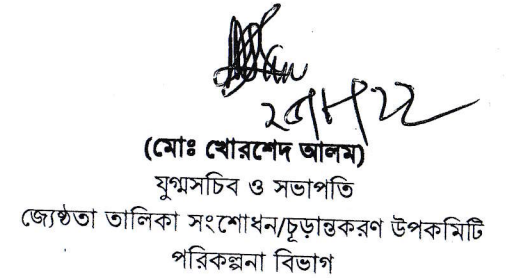 (মোঃ খোরশেদ আলম)
যুগ্মসচিব ও সভাপতি
জ্যেষ্ঠতা তালিকা সংশোধন/চূড়ান্তকরণ উপকমিটি
পরিকল্পনা বিভাগ